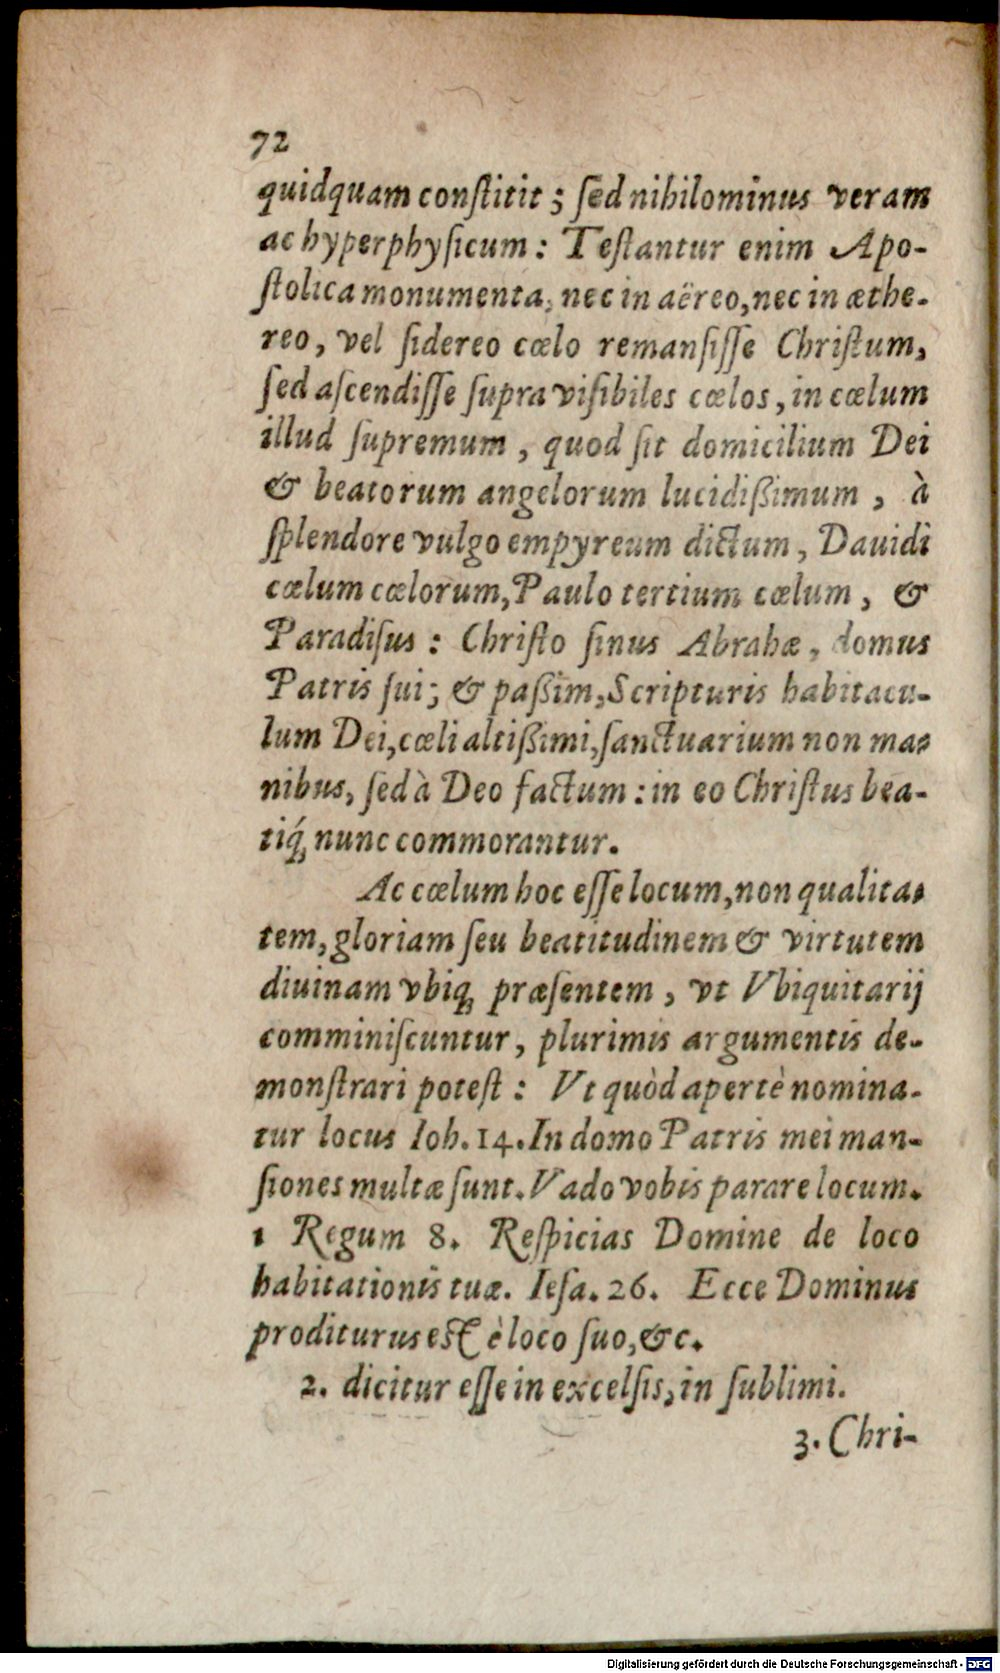 72
quidquam conſtitit; ſed nihilominus veram
ac hyperphyſicum: Teſtantur enim Apo-
ſtolica monumenta, nec in aëreo, nec in æthe-
reo, vel ſidereo cœlo remanſiſſe Chriſtum,
ſed aſcendiſſe ſupra viſibiles cœlos, in cœlum
illud ſupremum, quod ſit domicilium Dei
& beatorum angelorum lucidißimum, à
ſplendore vulgo empyreum dictum, Dauidi
cœlum cœlorum, Paulo tertium cœlum, &
Paradiſus: Chriſto ſinus Abrahæ, domus
Patris ſui; & paßim, Scripturis habitacu-
lum Dei, cœli altißimi, ſanctuarium non ma-
nibus, ſed à Deo factum: in eo Chriſtus bea-
tiq́; nunc commorantur.
Ac cœlum hoc eſſe locum, non qualita-
tem, gloriam ſeu beatitudinem & virtutem
diuinam vbiq; præſentem, vt Vbiquitarij
comminiſcuntur, plurimis argumentis de-
monſtrari poteſt: Vt quòd apertè nomina-
tur locus Ioh. 14. In domo Patris mei man-
ſiones multæ ſunt. Vado vobis parare locum.
1 Regum 8. Reſpicias Domine de loco
habitationis tuæ. Ieſa. 26. Ecce Dominus
proditurus eſt è loco ſuo, &c.
2. dicitur eſſe in excelſis, in ſublimi.
3. Chri-
Digitalisierung gefördert durch die Deutsche Forschungsgemeinschaft - DFG